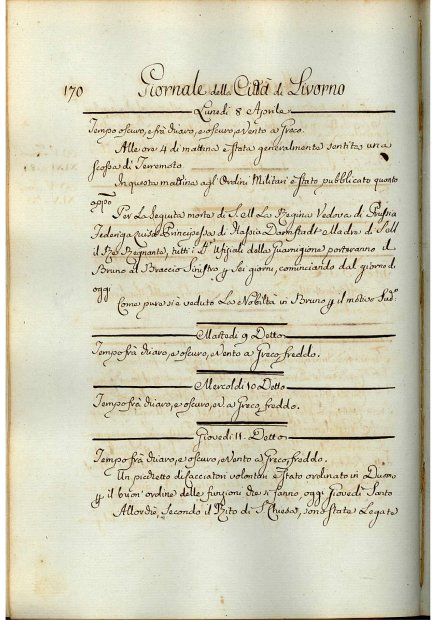 170 Giornale della Città di Livorno
Lunedi 8 Aprile
Tempo oscuro, e frà chiaro, e oscuro, e Vento a Greco.
Alle ore 4 di mattina è stata generalmente sentita una
scossa di Terremoto
In questa mattina agl Ordini Militari è stato pubblicato quanto
app.o
Per La Seguita morte di S. M. La Regina Vedova di Prussia
Federiga Luisa Principessa di Hassia Darmstadt Madre di
il Re Regnante, tutti i Uffiziali della Guarnigione porteranno il
Bruno al Braccio Sinistro p Sei giorni, cominciando dal giorno di
oggi
Come pure si è veduto La Nobiltà in Bruno p il motivo Sud.o
Martedi 9 Detto
Tempo frà chiaro, e oscuro, e Vento a Greco freddo.
Mercoldi 10 Detto
Tempo frà chiaro, e oscuro, e V. a Greco freddo.
Giovedi 11. Detto
Tempo frà chiaro, e oscuro, e Vento a Greco freddo.
Un picchetto di Cacciatori volontari è stato ordinato in Duomo
p il buon' ordine delle funzioni che si fanno, oggi Giovedi Santo
Allorchè, secondo il Rito di S. Chiesa, sono state Legate